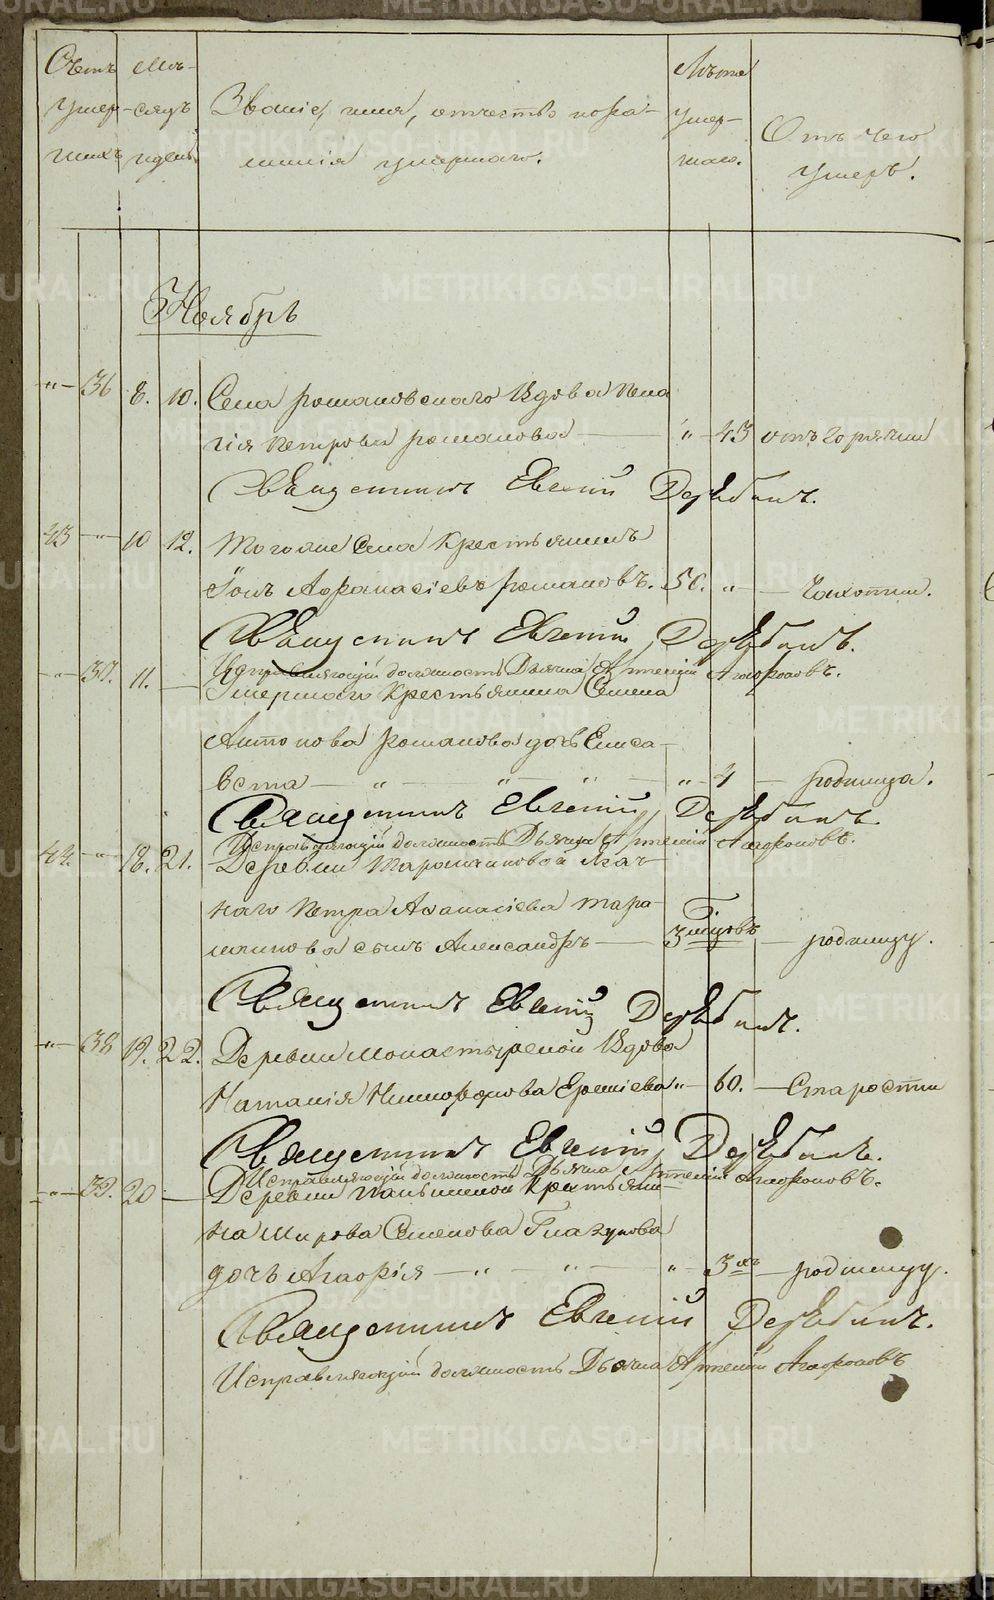 Счетъ умершихъ
Мѣсяцъ и день
Званіе, имя, отчество и фамилія умершаго.
Лѣта умершаго.
Отъ чего умеръ.
Ноябрь
"— 36 8. 10. Села Романовскаго Вдова Пела
гія Петрова Романова — " — 43 отъ горячки
Священникъ Евгеній Дерябинъ.
43 — " — 10 12. Тогоже Села Крестьянинъ
Іовъ Афанасіевъ Романовъ. 50. " — Чахотки.
Священникъ Евгеній Дерябинъ.
Исправляющій должность Дьячка Артемій Агафоновъ.
— " — 37. 11. — Умершаго Крестьянина Семена
Антонова Романова дочь Елиса-
вета — " — " — " — " — 4 — родимца.
Священникъ Евгеній Дерябинъ.
Исправляющій должность Дьячка Артемій Агафоновъ.
44. — " — 18. 21. Деревни Таромпиновой Казач-
наго Петра Афанасіева Таро-
сынъ Александръ — 3 — родимцу.
Священникъ Евгеній Дерябинъ.
— " — 38 19. 22. Деревни Монастырской Вдова
Наталія Никифорова Еремѣева " — 60. — Старости
Священникъ Евгеній Дерябинъ.
Исправляющій должность Дьячка Артемій Агафоновъ.
— " — 39. 20 — Деревни Крестьяни
на Семенова Глазунова
дочь Агафія — " — " — " — 3 — родимцу.
Священникъ Евгеній Дерябинъ.
Исправляющій должность Дьячка Артемій Агафоновъ
METRIKI.GASO-URAL.RU